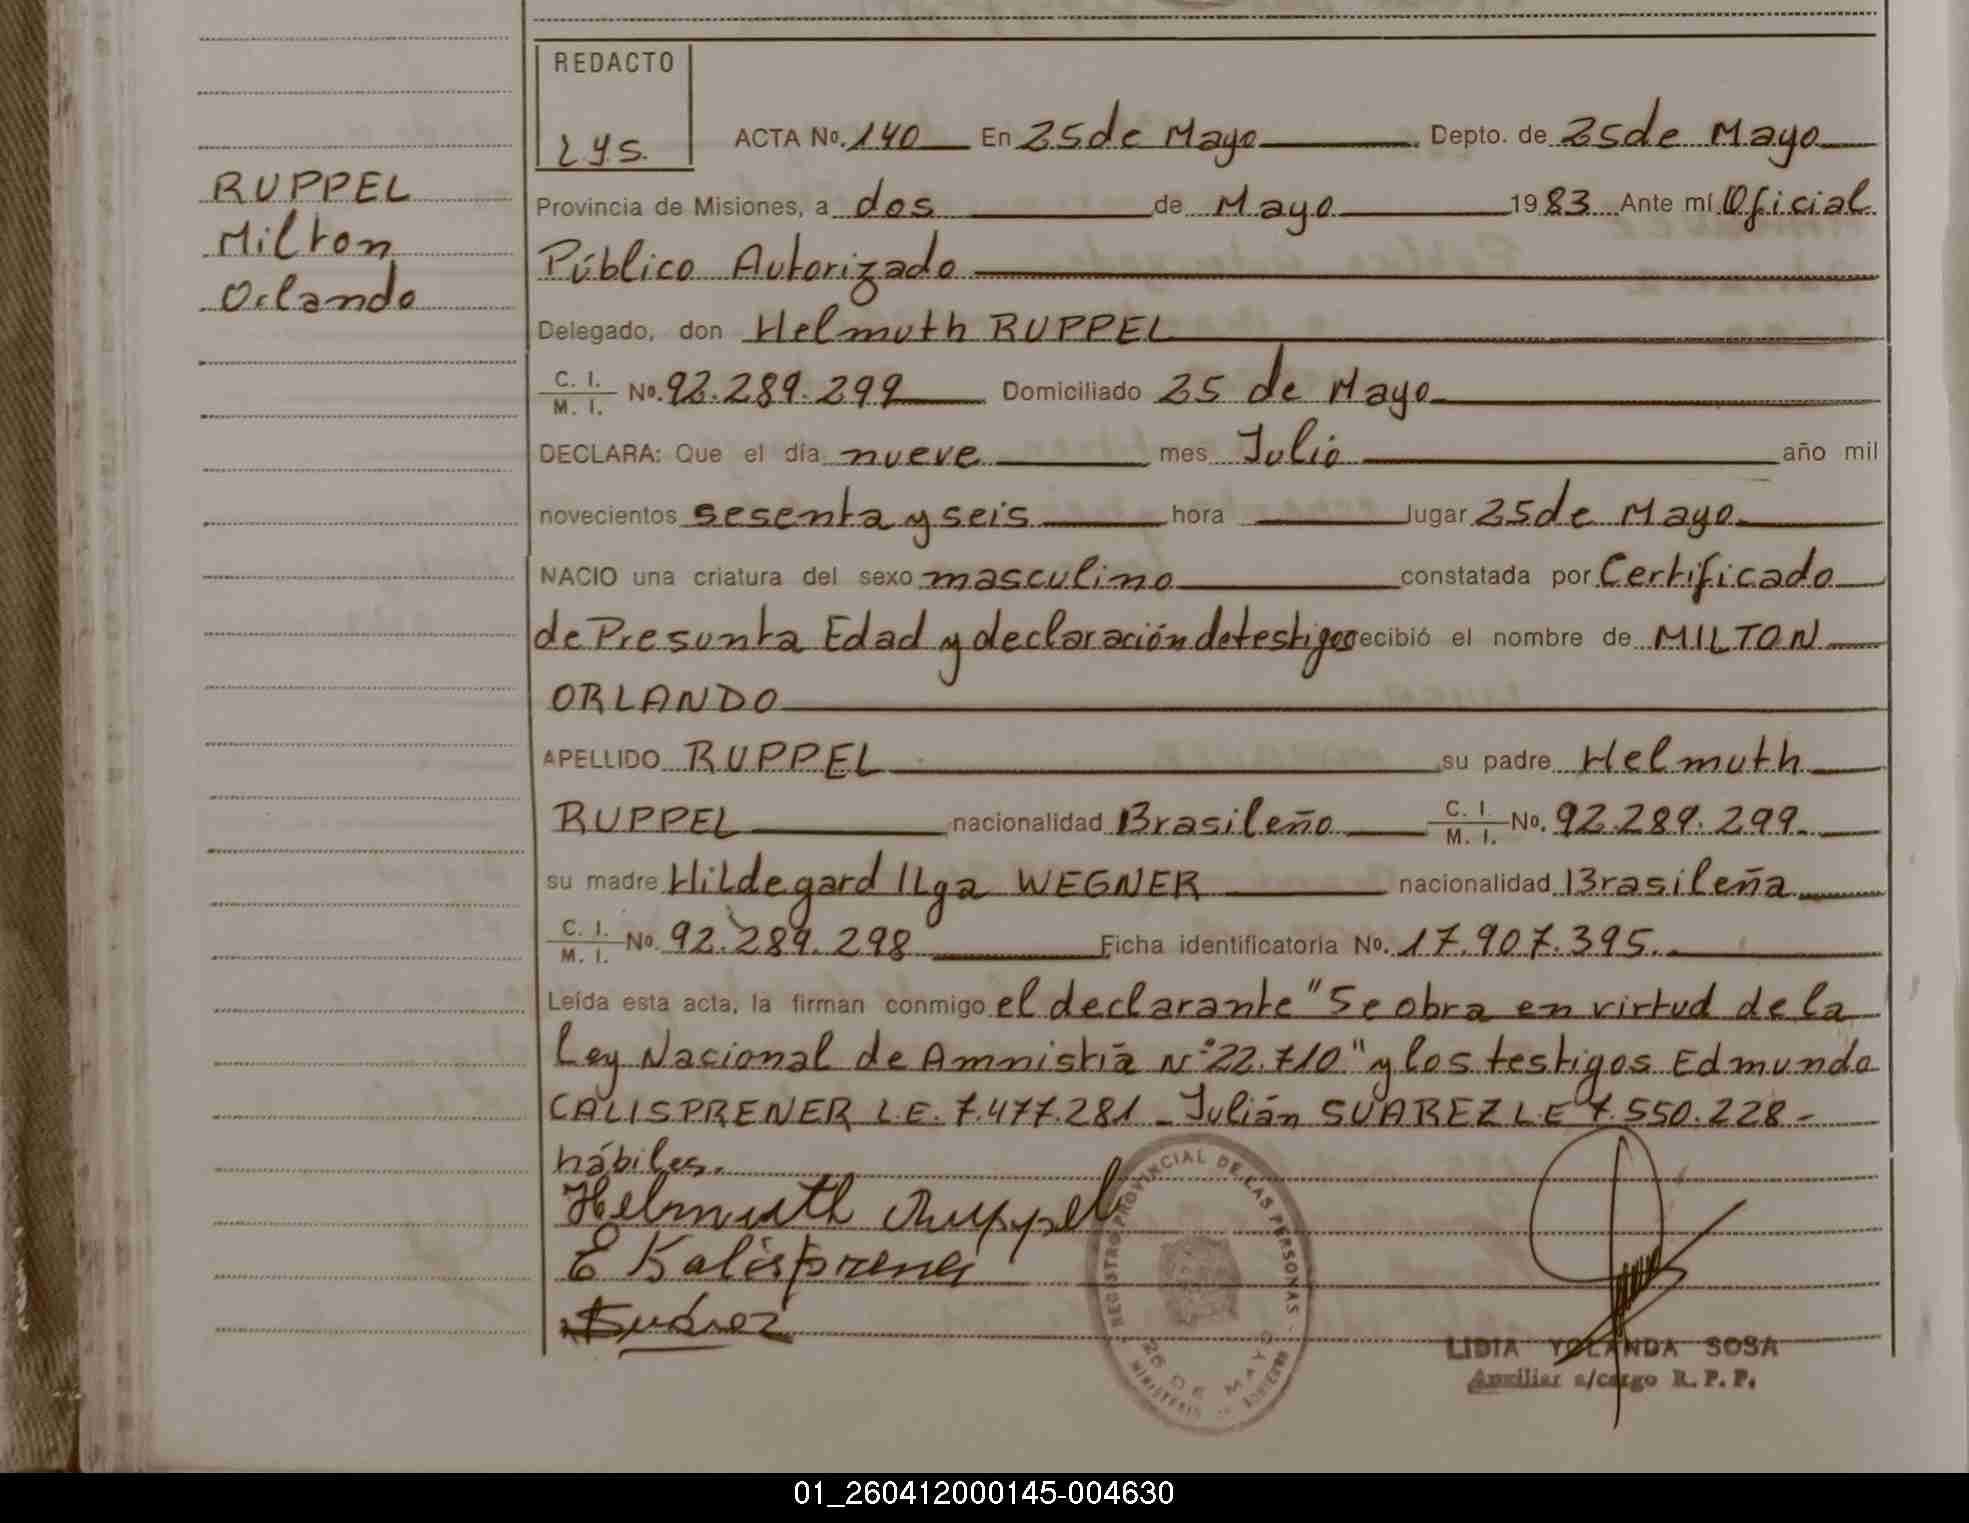 REDACTO
LYS.
ACTA No. 140 En 25 de Mayo Depto. de 25 de Mayo
RUPPEL
Milton
Orlando
Provincia de Misiones, a dos de Mayo 1983 Ante mí Oficial
Público Autorizado
Delegado, don Helmuth RUPPEL
C. I. / M. I. No. 92.289.299 Domiciliado 25 de Mayo
DECLARA: Que el día nueve mes Julio año mil
novecientos sesenta y seis hora lugar 25 de Mayo
NACIO una criatura del sexo masculino constatada por Certificado
de Presunta Edad y declaración de testigos recibió el nombre de MILTON
ORLANDO
APELLIDO RUPPEL su padre Helmuth
RUPPEL nacionalidad Brasileño C. I. / M. I. No. 92.289.299
su madre Hildegard Ilga WEGNER nacionalidad Brasileña
C. I. / M. I. No. 92.289.298 Ficha identificatoria No. 17.907.395.
Leída esta acta, la firman conmigo el declarante "Se obra en virtud de la
Ley Nacional de Amnistía N° 22.710" y los testigos Edmundo
CALISPRENER L.E. 7.477.281 - Julián SUAREZ L.E 7.550.228 -
hábiles.
Helmuth Ruppel
E Kalisprener
Suárez
REGISTRO PROVINCIAL DE LAS PERSONAS
25 DE MAYO
MINISTERIO DE GOBIERNO
LIDIA YOLANDA SOSA
Auxiliar a/cargo R. P. P.
01_260412000145-004630